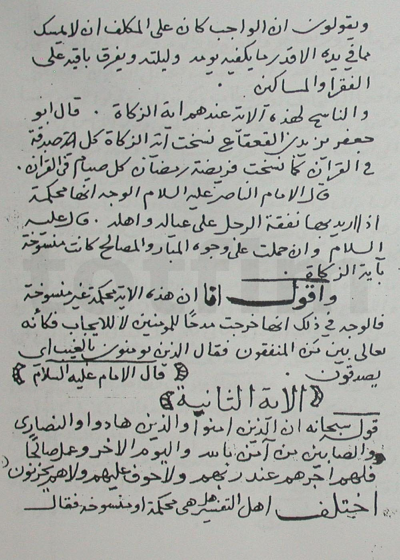 ويقولون ان الواجب كان على المكلف ان لا يمسك
مما في يده الا قدر ما يكفيه يومه وليلته ويفرق باقيه على
الفقرا والمساكين
والناسخ لهذه الاية عندهم اية الزكاة . قال ابو
جعفر بن يزيد القعقاع نسخت آية الزكاة كل صدقة
في القرآن كما نسخت فريضة رمضان كل صيام في القرآن .
قال الامام الناصر عليه السلام الوجه انها محكمة
اذا اريد بها نفقة الرجل على عياله واهله . قال عليه
السلام وان حملت على وجوه المبار والمصالح كانت منسوخة
بآية الزكاة .
واقول انا ان هذه الاية محكمة غير منسوخة
فالوجه في ذلك انها خرجت مدحا للمومنين لا للايجاب فكأنه
تعالى بين من المنفقون فقال الذين يومنون بالغيب اي
يصدقون . ﴿ قال الامام عليه السلام ﴾
﴿ الاية الثانية ﴾
قوله سبحانه ان الذين امنوا والذين هادوا والنصارى
والصابين من آمن بالله واليوم الاخر وعمل صالحا
فلهم اجرهم عند ربهم ولا خوف عليهم ولا هم يحزنون
اختلف اهل التفسير هل هي محكمة او منسوخة فقال